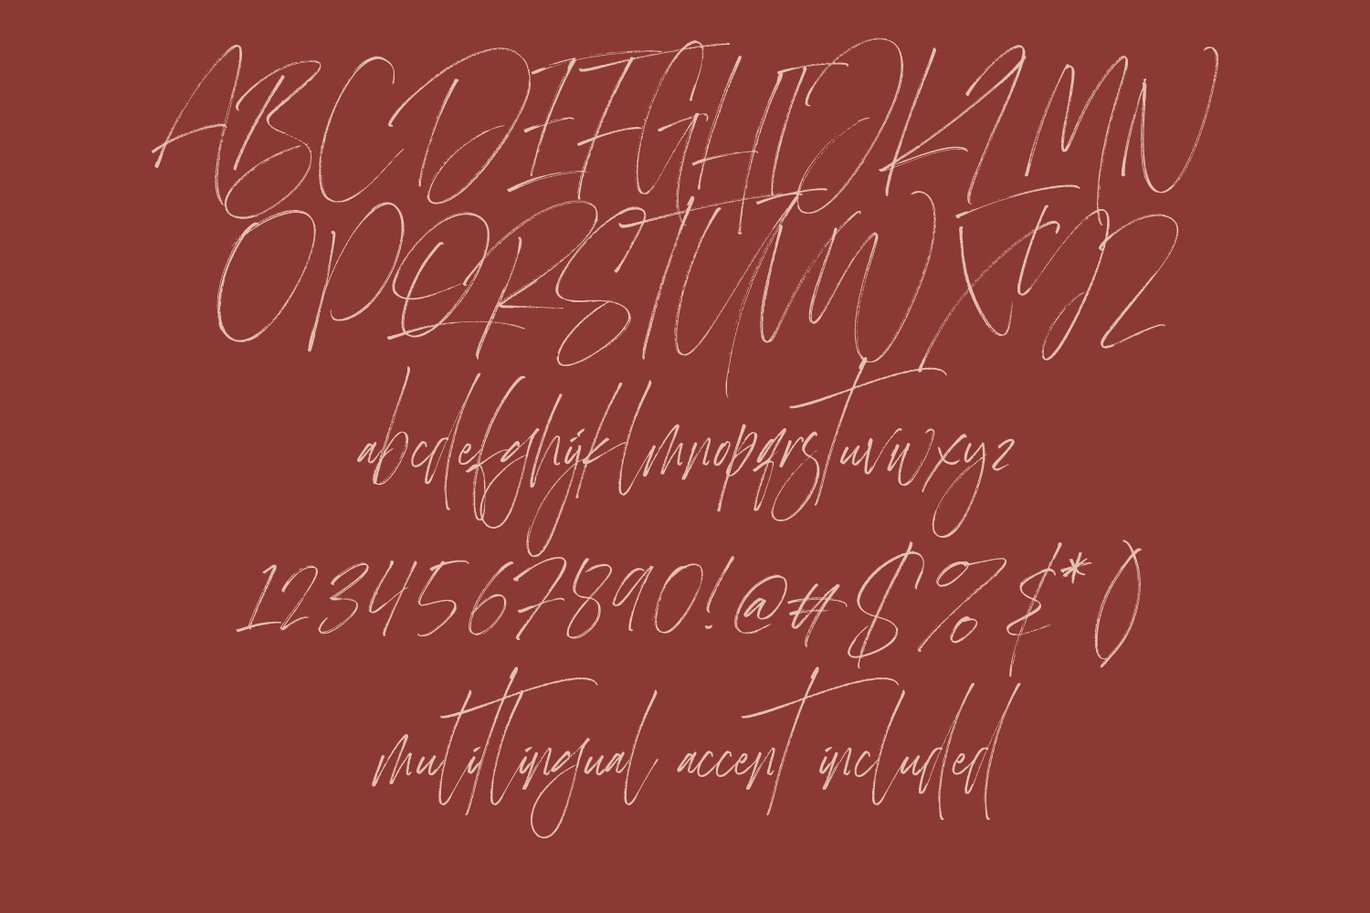 ABCDEFGHIJKLMN
OPQRSTUVWXYZ
abcdefghijklmnopqrstuvwxyz
1234567890!@#$%&*()
multilingual accent included